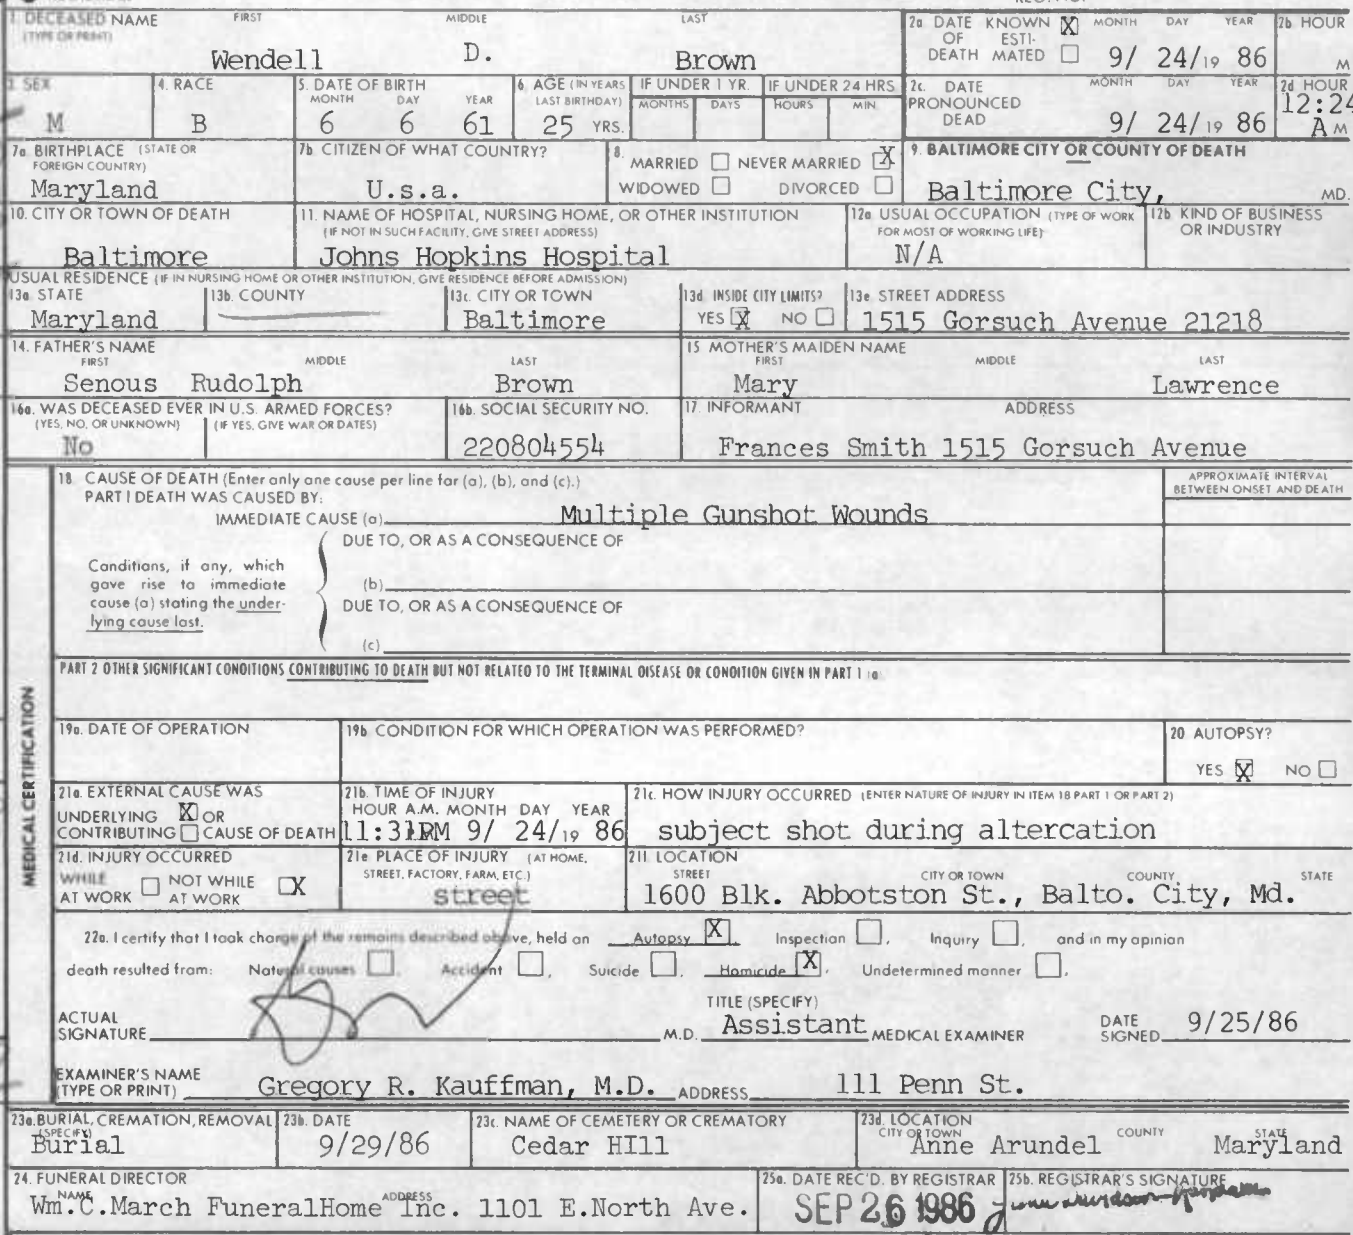 1 DECEASED NAME FIRST MIDDLE LAST
(TYPE OR PRINT)
Wendell D. Brown
2a DATE OF DEATH KNOWN X ESTI-MATED MONTH DAY YEAR
9/ 24/19 86
2b HOUR
M
3 SEX
M
4. RACE
B
5. DATE OF BIRTH
MONTH DAY YEAR
6 6 61
6 AGE (IN YEARS LAST BIRTHDAY)
25 YRS.
IF UNDER 1 YR.
MONTHS DAYS
IF UNDER 24 HRS
HOURS MIN.
2c. DATE PRONOUNCED DEAD
MONTH DAY YEAR
9/ 24/19 86
2d HOUR
12:24
A M
7a. BIRTHPLACE (STATE OR FOREIGN COUNTRY)
Maryland
7b. CITIZEN OF WHAT COUNTRY?
U.s.a.
8.
MARRIED NEVER MARRIED X
WIDOWED DIVORCED
9. BALTIMORE CITY OR COUNTY OF DEATH
Baltimore City, MD.
10. CITY OR TOWN OF DEATH
Baltimore
11. NAME OF HOSPITAL, NURSING HOME, OR OTHER INSTITUTION
(IF NOT IN SUCH FACILITY, GIVE STREET ADDRESS)
Johns Hopkins Hospital
12a USUAL OCCUPATION (TYPE OF WORK FOR MOST OF WORKING LIFE)
N/A
12b KIND OF BUSINESS OR INDUSTRY
USUAL RESIDENCE (IF IN NURSING HOME OR OTHER INSTITUTION, GIVE RESIDENCE BEFORE ADMISSION)
13a STATE
Maryland
13b. COUNTY
13c. CITY OR TOWN
Baltimore
13d INSIDE CITY LIMITS?
YES X NO
13e STREET ADDRESS
1515 Gorsuch Avenue 21218
14. FATHER'S NAME
FIRST MIDDLE LAST
Senous Rudolph Brown
15 MOTHER'S MAIDEN NAME
FIRST MIDDLE LAST
Mary Lawrence
16a. WAS DECEASED EVER IN U.S. ARMED FORCES?
(YES, NO, OR UNKNOWN) (IF YES, GIVE WAR OR DATES)
No
16b. SOCIAL SECURITY NO.
220804554
17. INFORMANT ADDRESS
Frances Smith 1515 Gorsuch Avenue
MEDICAL CERTIFICATION
18 CAUSE OF DEATH (Enter only one cause per line for (a), (b), and (c).)
PART I DEATH WAS CAUSED BY:
IMMEDIATE CAUSE (a) Multiple Gunshot Wounds
APPROXIMATE INTERVAL BETWEEN ONSET AND DEATH
DUE TO, OR AS A CONSEQUENCE OF
Conditions, if any, which
gave rise to immediate
cause (a) stating the under-
lying cause last.
(b)
DUE TO, OR AS A CONSEQUENCE OF
(c)
PART 2 OTHER SIGNIFICANT CONDITIONS CONTRIBUTING TO DEATH BUT NOT RELATED TO THE TERMINAL DISEASE OR CONDITION GIVEN IN PART 1 (a)
19a. DATE OF OPERATION
19b CONDITION FOR WHICH OPERATION WAS PERFORMED?
20 AUTOPSY?
YES X NO
21a. EXTERNAL CAUSE WAS
UNDERLYING X OR
CONTRIBUTING CAUSE OF DEATH
21b. TIME OF INJURY
HOUR A.M. MONTH DAY YEAR
11:31PM 9/ 24/19 86
21c. HOW INJURY OCCURRED (ENTER NATURE OF INJURY IN ITEM 18 PART 1 OR PART 2)
subject shot during altercation
21d. INJURY OCCURRED
WHILE AT WORK NOT WHILE AT WORK X
21e PLACE OF INJURY (AT HOME, STREET, FACTORY, FARM, ETC.)
street
21f. LOCATION
STREET CITY OR TOWN COUNTY STATE
1600 Blk. Abbotston St., Balto. City, Md.
22a. I certify that I took charge of the remains described above, held an Autopsy X, Inspection, Inquiry, and in my opinion
death resulted from: Natural causes, Accident, Suicide, Homicide X, Undetermined manner.
ACTUAL SIGNATURE M.D.
TITLE (SPECIFY)
Assistant MEDICAL EXAMINER
DATE SIGNED 9/25/86
EXAMINER'S NAME (TYPE OR PRINT) Gregory R. Kauffman, M.D. ADDRESS 111 Penn St.
23a. BURIAL, CREMATION, REMOVAL (SPECIFY)
Burial
23b. DATE
9/29/86
23c. NAME OF CEMETERY OR CREMATORY
Cedar HIll
23d. LOCATION
CITY OR TOWN COUNTY STATE
Anne Arundel Maryland
24. FUNERAL DIRECTOR
NAME ADDRESS
Wm.C.March FuneralHome Inc. 1101 E.North Ave.
25a. DATE REC'D. BY REGISTRAR
SEP 26 1986
25b. REGISTRAR'S SIGNATURE